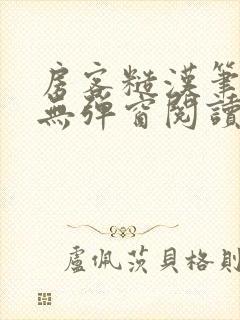 房客糙漢筆
無彈窗閱讀
盧佩茨貝格則